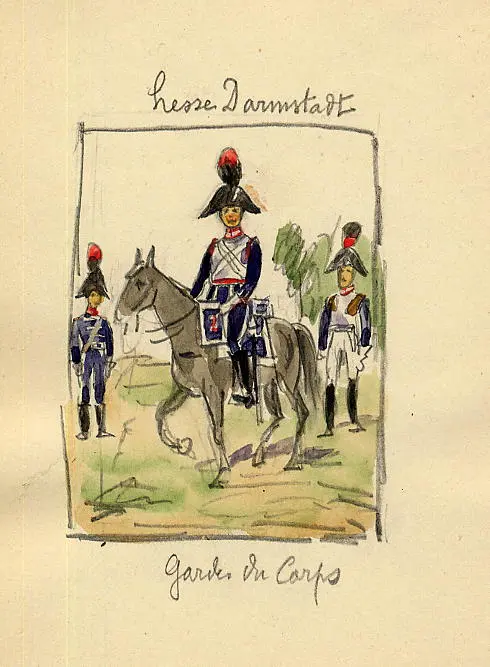 hesse Darmstadt
Gardes du Corps